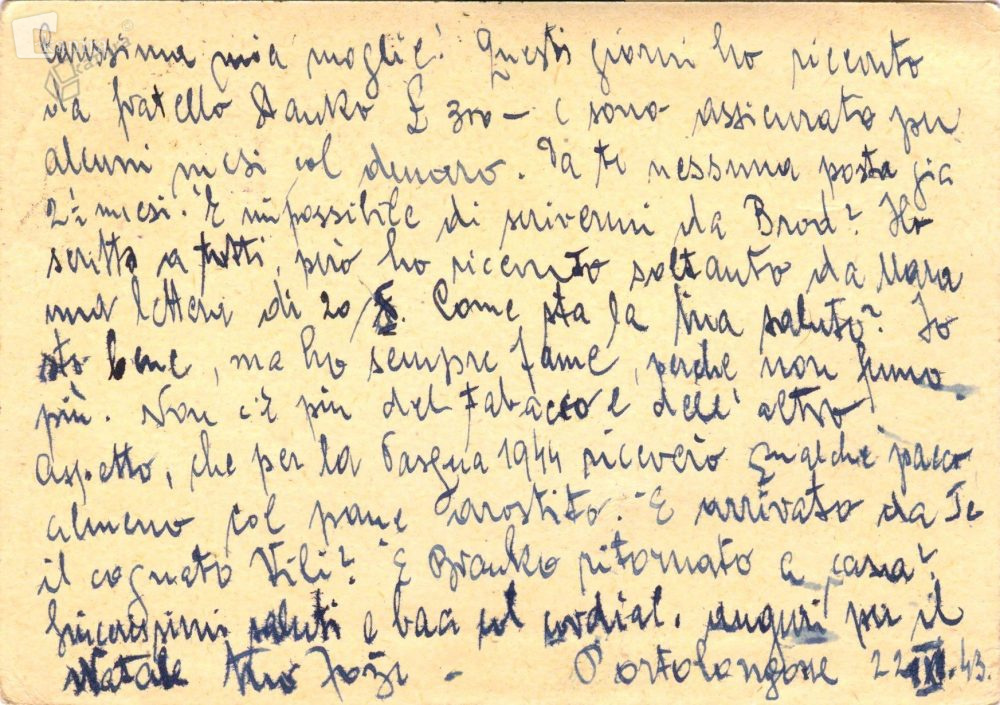 Carissima mia moglie! Questi giorni ho ricevuto
da fratello Stanko £ 300 – e sono assicurato per
alcuni mesi col denaro. Da te nessuna posta già
2½ mesi. È impossibile di scrivermi da Brod? Ho
scritto a tutti, però ho ricevuto soltanto da Mara
una lettera di 20/8. Come sta la tua saluto? Io
sto bene, ma ho sempre fame, perche non fumo
più. Non c'è piu del tabacco e dell' altro
Aspetto, che per la Pasqua 1944 riceverò qualche pacco
almeno col pane arostito. È arrivato da Te
il cognato Vili? È Branko ritornato a casa?
saluti e baci col cordial. auguri per il
Natale Tuo Jože – Portolongone 22.XI.43.